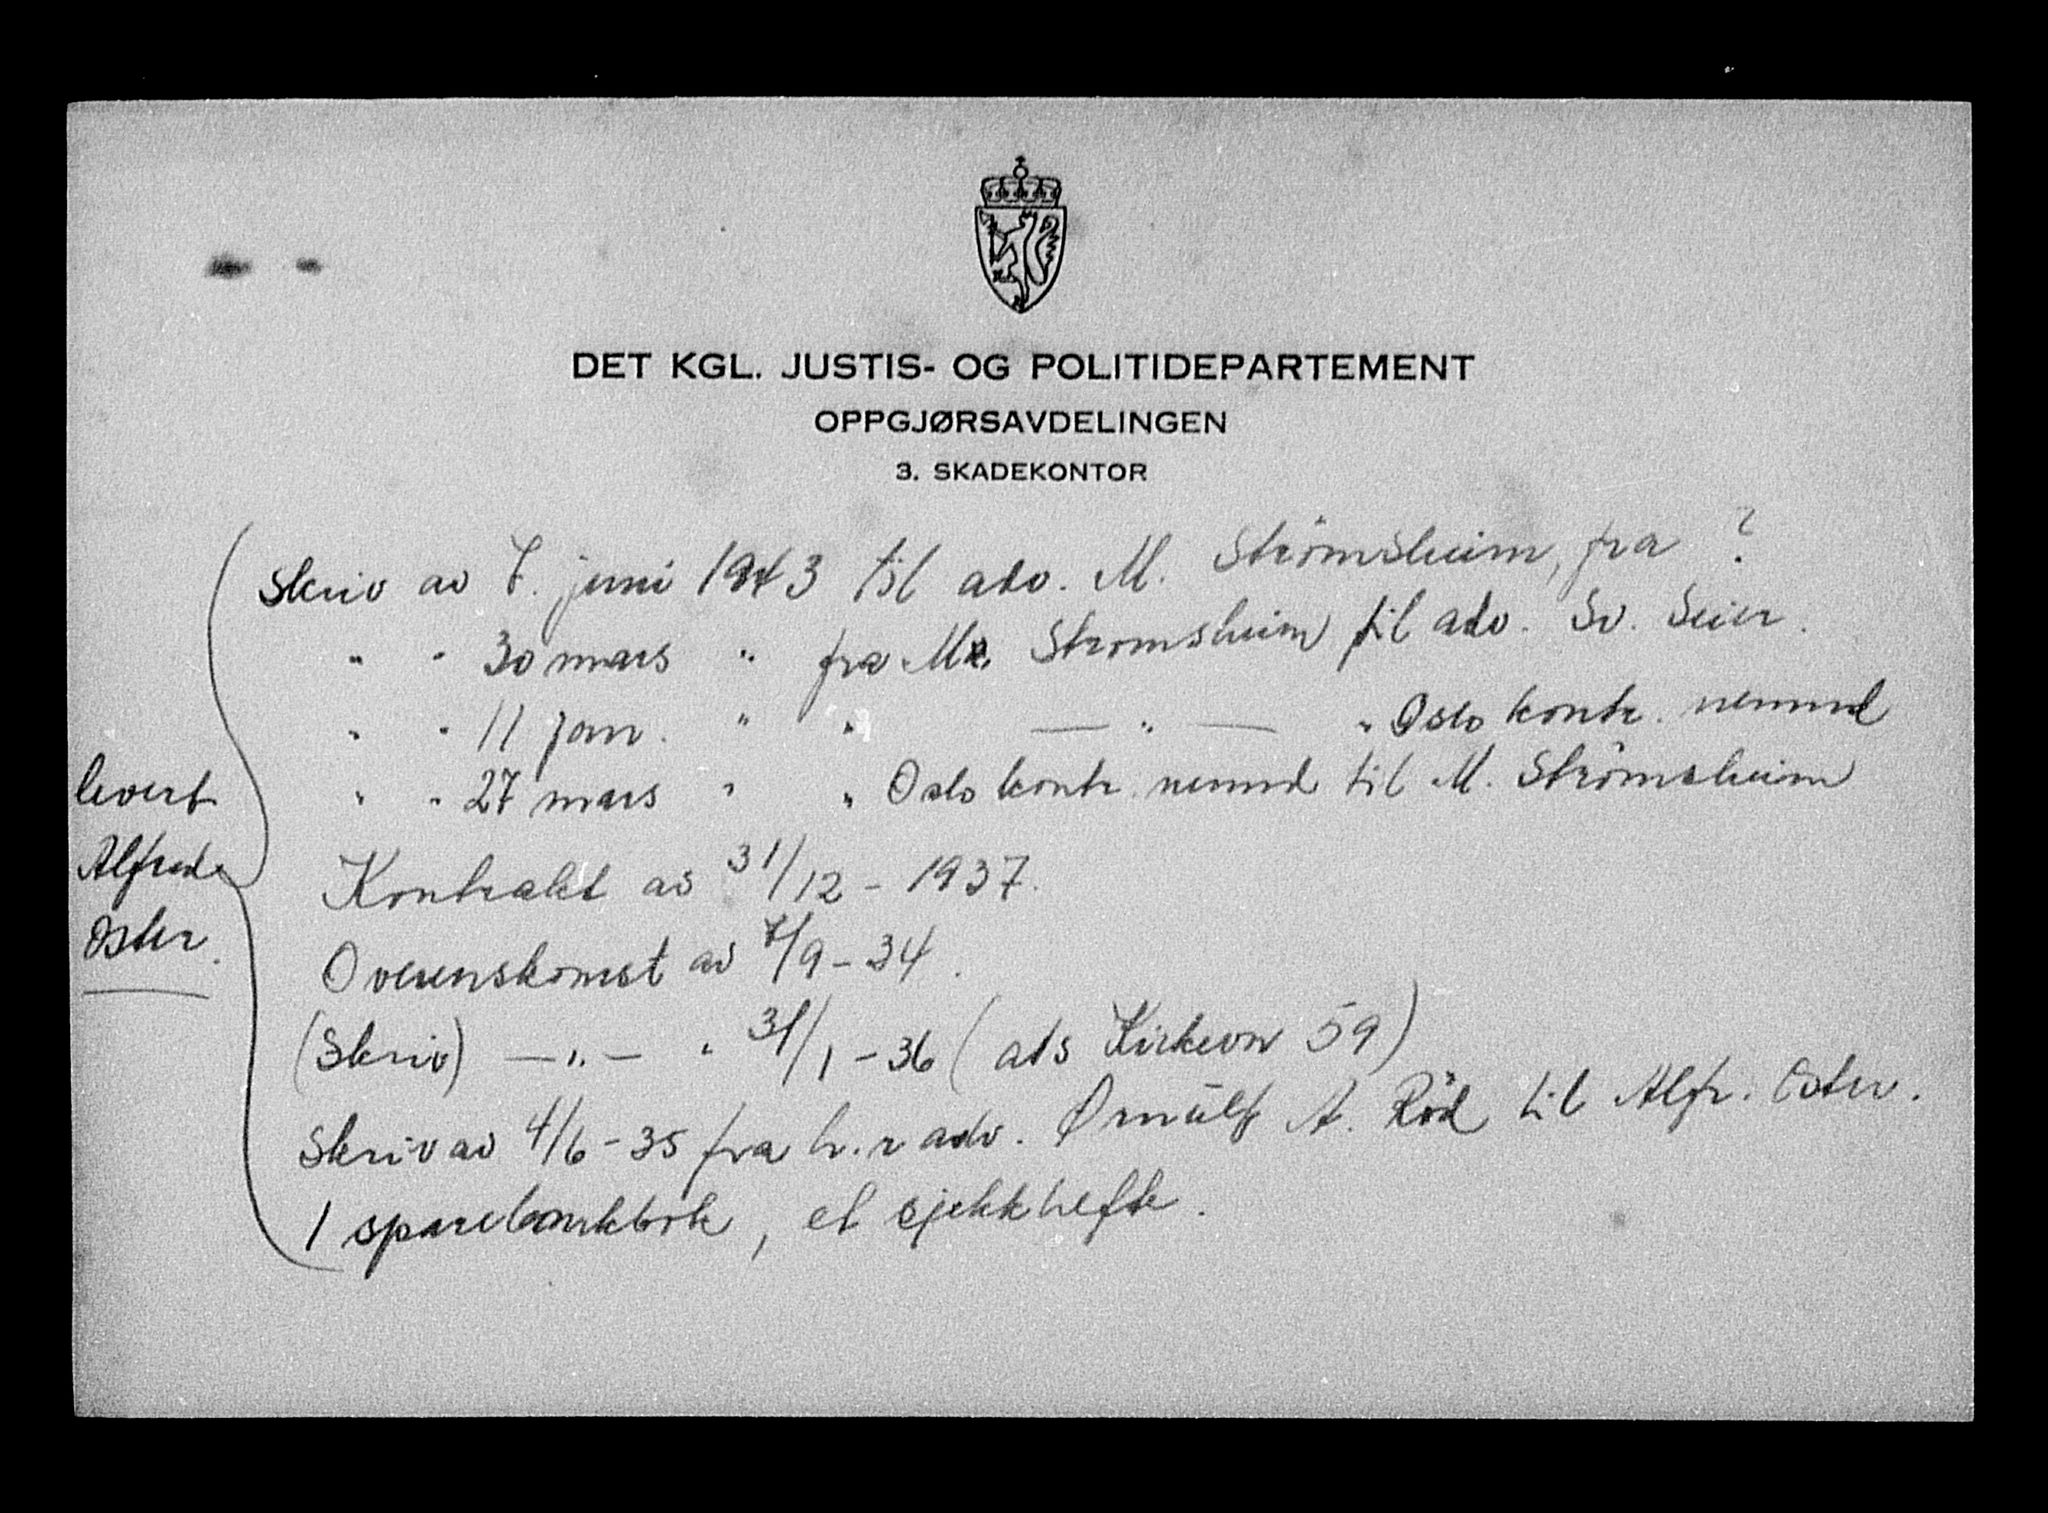 DET KGL. JUSTIS- OG POLITIDEPARTEMENT
OPPGJØRSAVDELINGEN
3. SKADEKONTOR
Skriv av 7. juni 1943 til adv. M. Strömsheim, fra ?
" " 30 mars " fra M. Stromsheim til adv. Sv. Seier.
" " 11 jan. " " — " — " Oslo kontr. nemnd
" " 27 mars " " Oslo kontr. nemnd til M. Strömsheim
Kontrakt av 31/12 - 1937.
Overenskomst av 7/9 - 34.
(Skriv) — " — " 31/1 - 36 (ads Kirkevn 59)
Skriv av 4/6 - 35 fra h.r adv. Ørnulf A. Röd til Alfr. Oster.
1 sparebankbok, et sjekkhefte.
levert
Alfred
Oster.